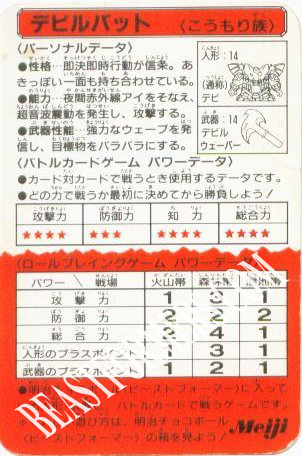 デビルバット 〈こうもり族〉
〈パーソナルデータ〉
●性格…即決即時行動が信条。あ
きっぽい一面も持ち合わせている。
●能力…夜間赤外線アイをそなえ、
超音波震動を発生し、攻撃する。
●武器性能…強力なウェーブを発
信し、目標物をバラバラにする。
人形:14
(通称)
デビ
武器:14
デビル
ウェーバー
〈バトルカードゲーム パワーデータ〉
●カード対カードで戦うとき使用するデータです。
●どの力で戦うか最初に決めてから勝負しよう!
攻撃力 防御力 知力 総合力
★★★★ ★★★★ ★★★★ ★★★★
〈ロールプレイングゲーム パワーデータ〉
パワー 戦場 火山帯 森林帯
攻撃力 1 3 1
防御力 2 2 2
総合力 4 1
人形のプラスポイント 1 3 1
武器のプラスポイント 1 1
バトルカードで戦うゲームです。
遊び方は、明治チョコボール
〈ビーストフォーマー〉の箱を見よう!
Meiji